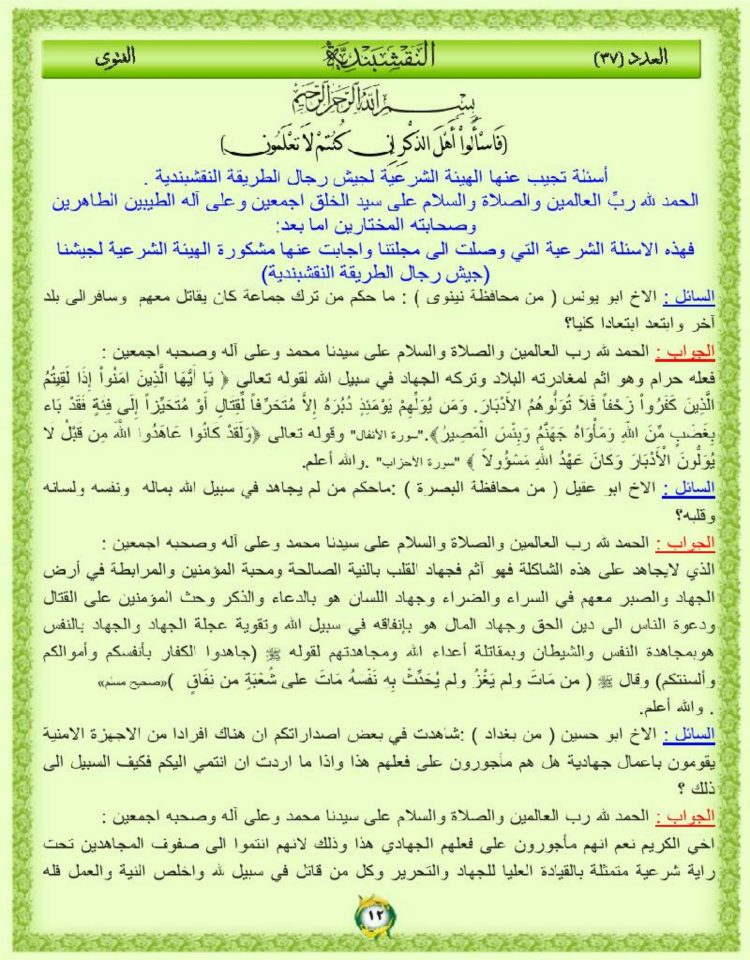 العدد (٣٧)
النقشبندية
الفتوى
بسم الله الرحمن الرحيم
(فَاسْأَلُواْ أَهْلَ الذِّكْرِ إِن كُنتُمْ لاَ تَعْلَمُونَ)
أسئلة تجيب عنها الهيئة الشرعية لجيش رجال الطريقة النقشبندية .
الحمد لله ربِّ العالمين والصلاة والسلام على سيد الخلق اجمعين وعلى آله الطيبين الطاهرين
وصحابته المختارين اما بعد:
فهذه الاسئلة الشرعية التي وصلت الى مجلتنا واجابت عنها مشكورة الهيئة الشرعية لجيشنا
(جيش رجال الطريقة النقشبندية)
السائل : الاخ ابو يونس ( من محافظة نينوى ) : ما حكم من ترك جماعة كان يقاتل معهم وسافر الى بلد
آخر وابتعد ابتعادا كليا؟
الجواب : الحمد لله رب العالمين والصلاة والسلام على سيدنا محمد وعلى آله وصحبه اجمعين :
فعله حرام وهو اثم لمغادرته البلاد وتركه الجهاد في سبيل الله لقوله تعالى ﴿ يَا أَيُّهَا الَّذِينَ امَنُواْ إِذَا لَقِيتُمُ
الَّذِينَ كَفَرُواْ زَحْفاً فَلاَ تُوَلُّوهُمُ الأَدْبَارَ. وَمَن يُوَلِّهِمْ يَوْمَئِذٍ دُبُرَهُ إِلاَّ مُتَحَرِّفاً لِّقِتَالٍ أَوْ مُتَحَيِّزاً إِلَى فِئَةٍ فَقَدْ بَاء
بِغَضَبٍ مِّنَ اللّهِ وَمَأْوَاهُ جَهَنَّمُ وَبِئْسَ الْمَصِيرُ﴾."سورة الأنفال" وقوله تعالى ﴿وَلَقَدْ كَانُوا عَاهَدُوا اللَّهَ مِن قَبْلُ لَا
يُوَلُّونَ الْأَدْبَارَ وَكَانَ عَهْدُ اللَّهِ مَسْؤُولاً ﴾ "سورة الأحزاب" .والله أعلم.
السائل : الاخ ابو عقيل ( من محافظة البصرة ) :ماحكم من لم يجاهد في سبيل الله بماله ونفسه ولسانه
وقلبه؟
الجواب : الحمد لله رب العالمين والصلاة والسلام على سيدنا محمد وعلى آله وصحبه اجمعين :
الذي لايجاهد على هذه الشاكلة فهو آثم فجهاد القلب بالنية الصالحة ومحبة المؤمنين والمرابطة في أرض
الجهاد والصبر معهم في السراء والضراء وجهاد اللسان هو بالدعاء والذكر وحث المؤمنين على القتال
ودعوة الناس الى دين الحق وجهاد المال هو بإنفاقه في سبيل الله وتقوية عجلة الجهاد والجهاد بالنفس
هوبمجاهدة النفس والشيطان وبمقاتلة أعداء الله ومجاهدتهم لقوله ﷺ (جاهدوا الكفار بأنفسكم وأموالكم
وألسنتكم) وقال ﷺ ( من مَاتَ ولم يَغْزُ ولم يُحَدِّثْ بِه نَفْسَهُ مَاتَ على شُعْبَةٍ من نفَاقٍ )«صحيح مسلم»
. والله أعلم.
السائل : الاخ ابو حسين ( من بغداد ) :شاهدت في بعض اصداراتكم ان هناك افرادا من الاجهزة الامنية
يقومون باعمال جهادية هل هم مأجورون على فعلهم هذا واذا ما اردت ان انتمي اليكم فكيف السبيل الى
ذلك ؟
الجواب : الحمد لله رب العالمين والصلاة والسلام على سيدنا محمد وعلى آله وصحبه اجمعين :
اخي الكريم نعم انهم مأجورون على فعلهم الجهادي هذا وذلك لانهم انتموا الى صفوف المجاهدين تحت
راية شرعية متمثلة بالقيادة العليا للجهاد والتحرير وكل من قاتل في سبيل لله واخلص النية والعمل فله
١٢